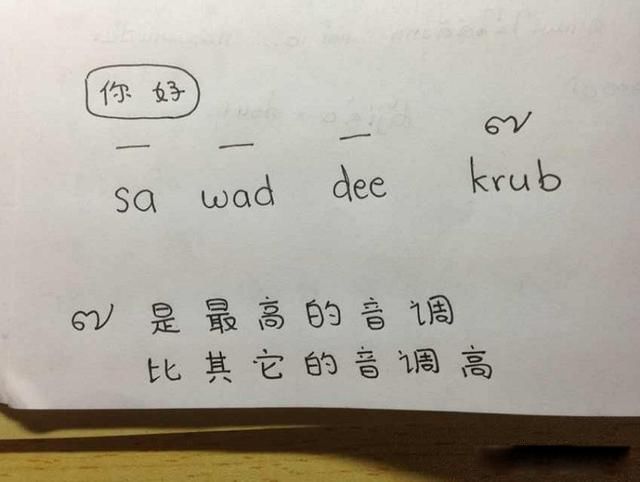 你好
sa wad dee krub
๗ 是最高的音调
比其它的音调高